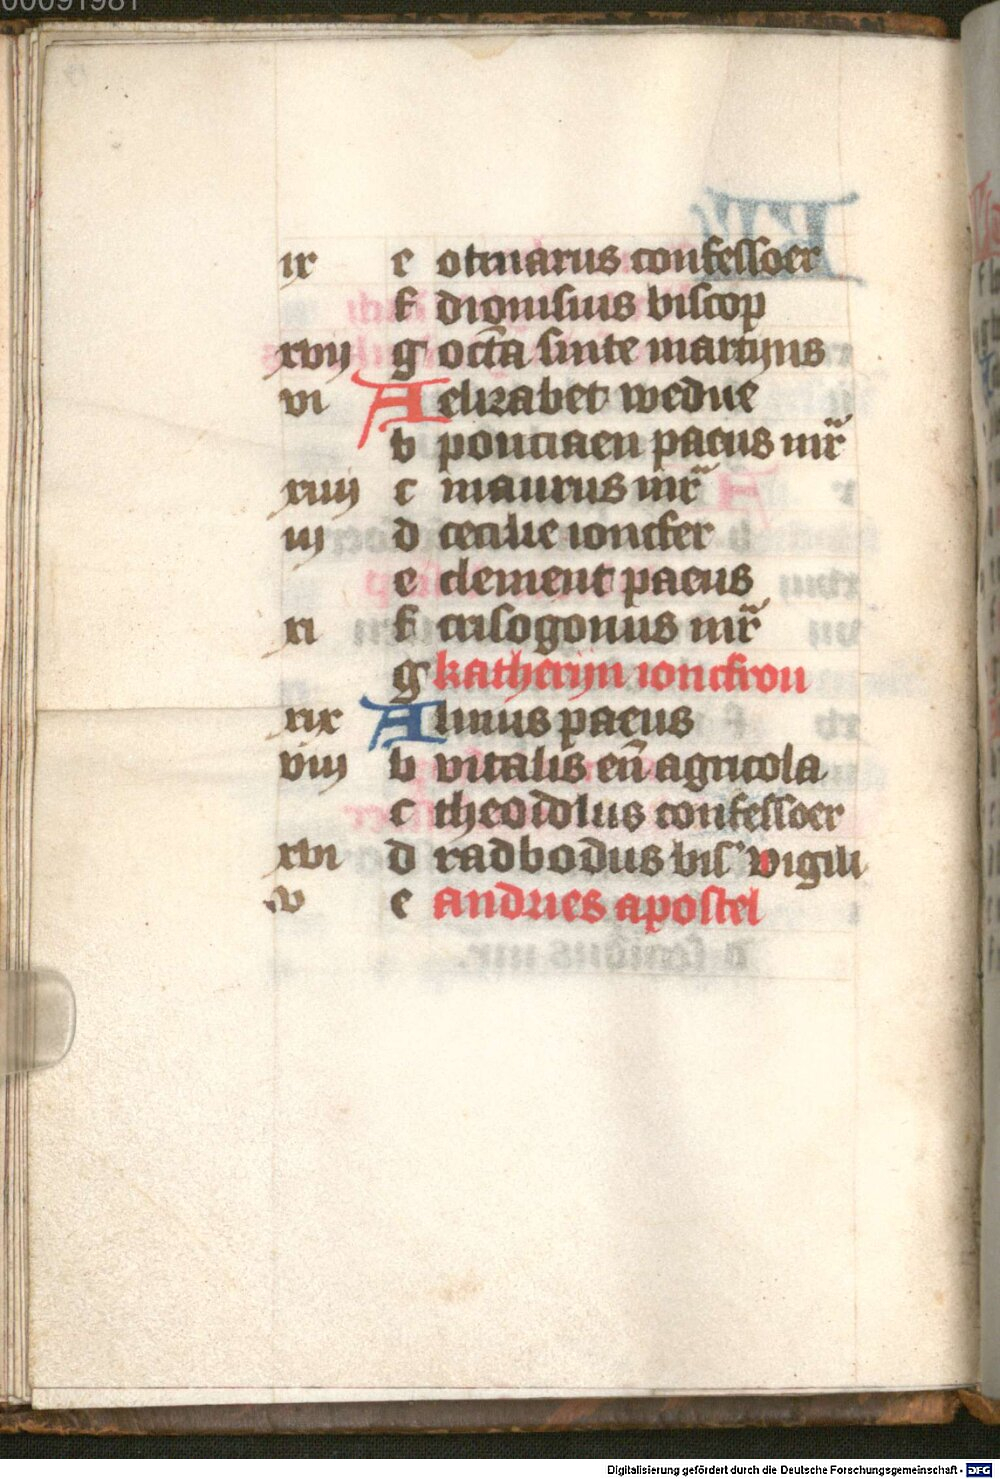 00091981
ix e otmarus confessoer
f dionisius biscop
xvij g octa sinte martijns
vi A elizabet wedue
b ponciaen paeus mr̃
xiiij c maurus mr̃
iij d cecilie ioncfer
e clement paeus
xi f crisogonus mr̃
g katherijn ioncfrou
xix A linus paeus
viij b vitalis en̄ agricola
c theoidlus confessoer
xvi d radbodus bis' vigili
v e andries apostel
Digitalisierung gefördert durch die Deutsche Forschungsgemeinschaft - DFG